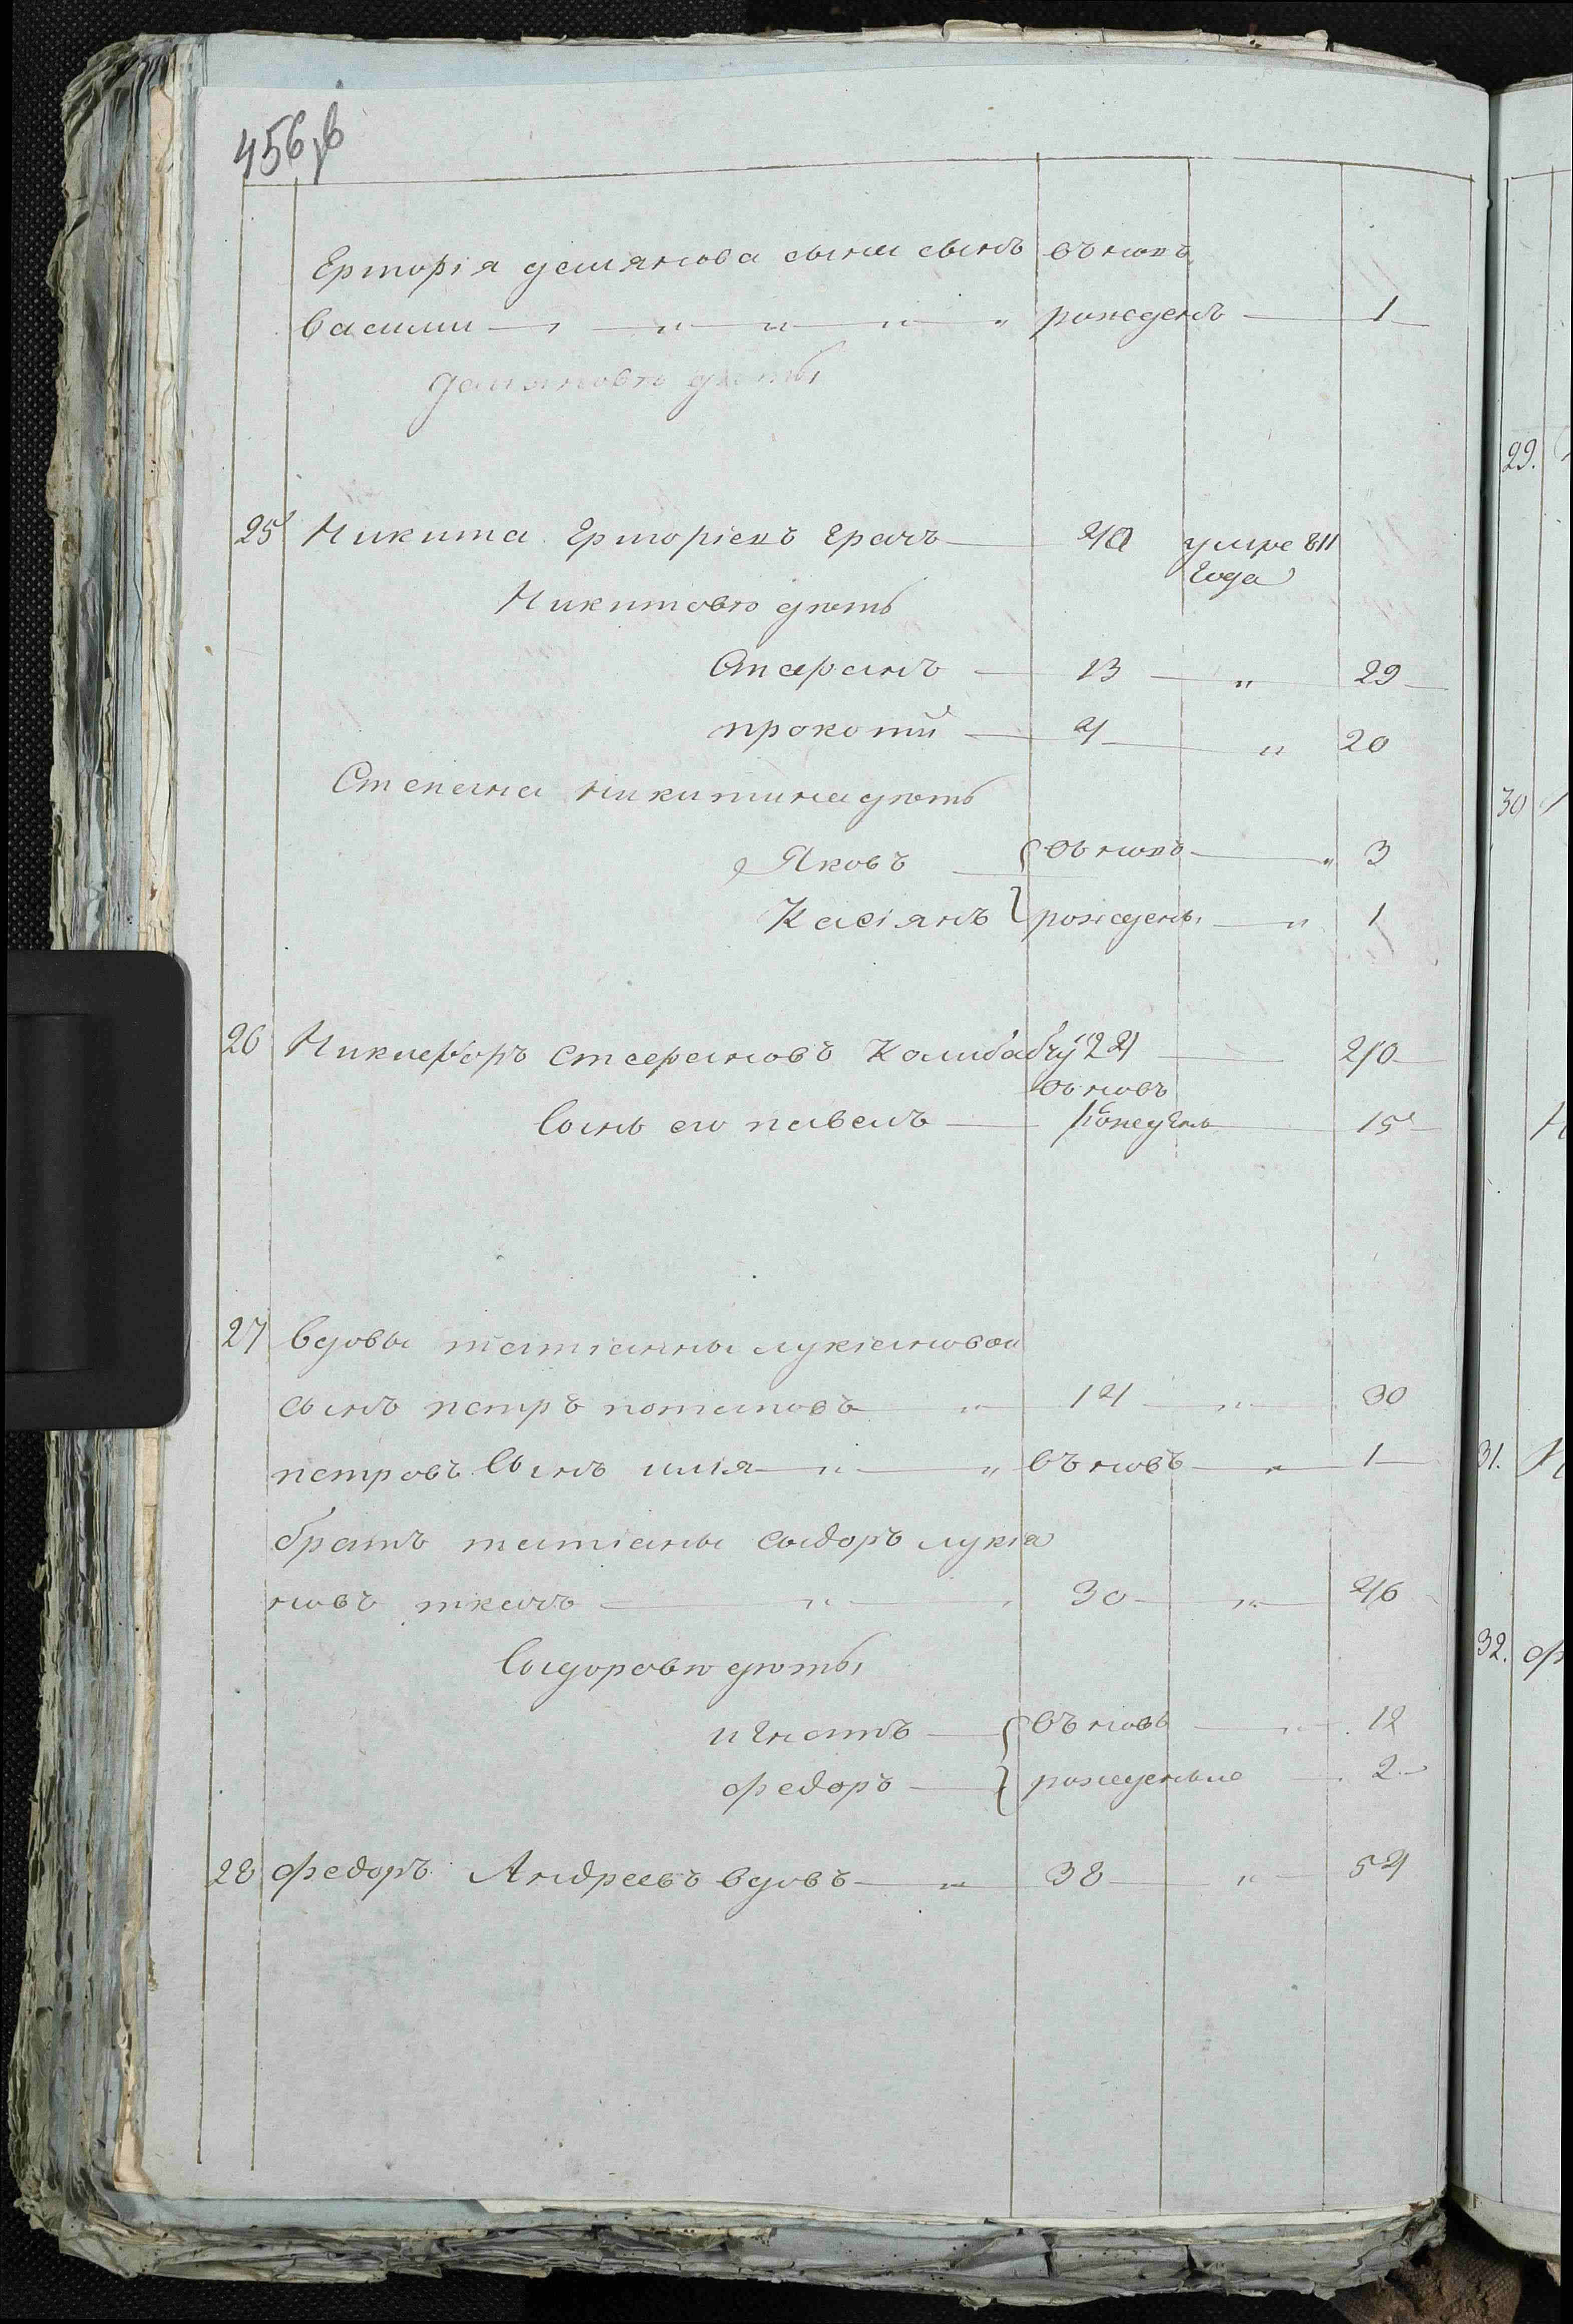 456,б
Ермогія демянова сына сынъ въ новъ
василии рожденъ 1
демяновы дѣты
25 Никита Ермогіевъ Грачъ 40 умре 811
года
Никитовю дѣты
Стефанъ 13 29
прокопий 4 20
Степана никитина дѣты
Яковъ въ новъ 3
Касіянъ рождены 1
26 Никифоръ Стефановъ 24 40
въ новъ
Сынъ его павелъ рожденъ 15
27 вдовы татіанны лукіановои
сынъ петръ потаповъ 14 30
петровъ Сынъ илія въ новъ 1
братъ татіаны сыдоръ лукіа
новъ ткачъ 30 46
Сыдоровю дѣты
игнатъ въ новъ 12
федоръ рожденые 2
28 федоръ Андреевъ вдовъ 38 54
29.
30
31.
32.